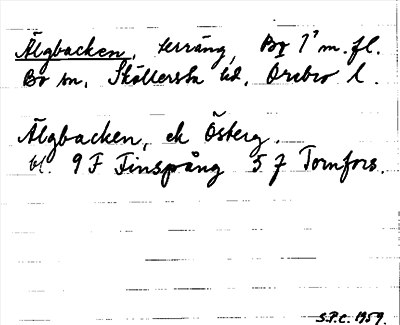 Älgbacken, terräng, Bo 1² m.fl.
Bo sn, Sköllersta hd, Örebro l.
Älgbacken, ek Österg.
bl. 9 F Finspång 5 f Tornfors.
S.P.C. 1959.